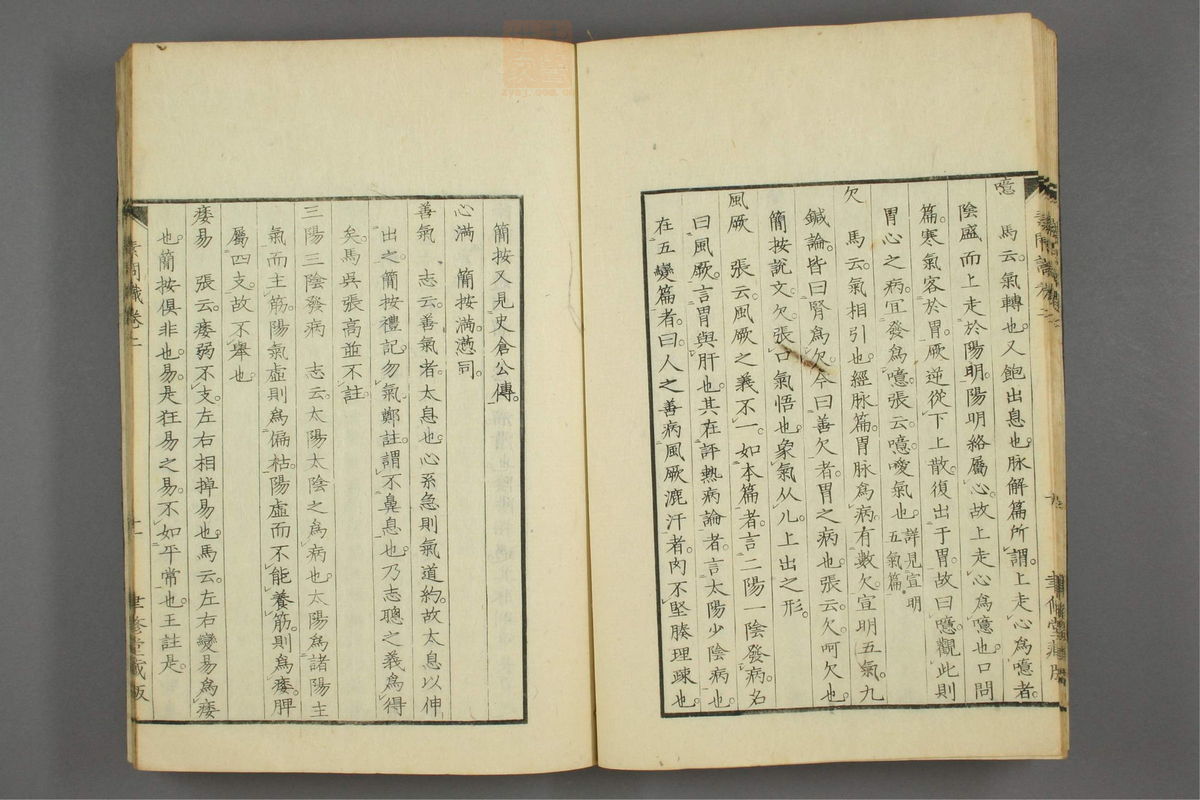 噫　馬云氣轉也又飽出息也脉解篇所謂上走心爲噫者
陰盛而上走於陽明陽明絡屬心故上走心爲噫也口問
篇寒氣客於胃厥逆從下上散復出于胃故曰噫觀此則
胃心之病冝發爲噫張云噫噯氣也詳見宣明五氣篇
欠　馬云氣相引也經脉篇胃脉爲病有數欠宣明五氣九
鍼論皆曰腎爲欠今曰善欠者胃之病也張云欠呵欠也
簡按說文欠張口氣悟也象氣从儿上出之形
風厥　張云風厥之義不一如本篇者言二陽一陰發病名
曰風厥言胃與肝也其在評熱病論者言太陽少陰病也
在五變篇者曰人之善病風厥漉汗者肉不堅腠理疎也
簡按又見史倉公傳
心滿　簡按滿懣同
善氣　志云善氣者太息也心系急則氣道約故太息以伸
出之簡按禮記勿氣鄭註謂不鼻息也乃志聰之義爲得
矣馬吳張高並不註
三陽三陰發病　志云太陽太陰之爲病也太陽爲諸陽主
氣而主筋陽氣虛則爲偏枯陽虛而不能養筋則爲痿脾
屬四支故不舉也
痿易　張云痿弱不支左右相掉易也馬云左右變易爲痿
也簡按俱非也易是狂易之易不如平常也王註是
素問識卷二
十一
聿修堂藏版